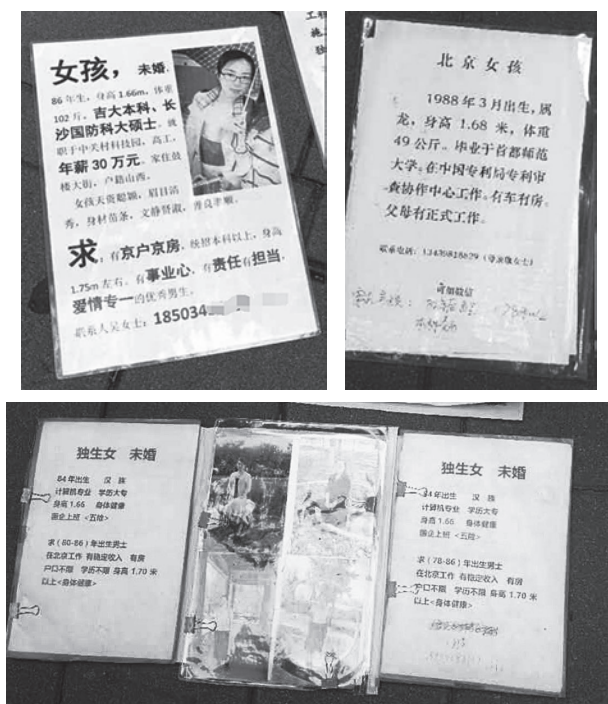 女孩，未婚，
86年生，身高1.66m，体重
102斤。吉大本科、长
沙国防科大硕士。就
职于中关村科技园，高工，
年薪30万元。家住鼓
楼大街，户籍山西。
女孩天资聪颖，眉目清
秀，身材苗条，文静贤淑，善良孝顺。
求：有京户京房，统招本科以上，身高
1.75m左右。有事业心，有责任有担当，
爱情专一的优秀男生。
联系人吴女士：185034
工程
施
独
北京女孩
1988年3月出生，属
龙，身高1.68米，体重
49公斤。毕业于首都师范
大学。在中国专利局专利审
查协作中心工作。有车有房。
父母有正式工作。
可加微信
独生女 未婚
84年出生 汉族
计算机专业 学历大专
身高1.66 身体健康
国企上班 <五险>
求(80-86)年出生男士
在北京工作 有稳定收入 有房
户口不限 学历不限 身高1.70米
以上<身体健康>
独生女 未婚
84年出生 汉族
计算机专业 学历大专
身高1.66 身体健康
国企上班 <五险>
求(78-86)年出生男士
在北京工作 有稳定收入 有房
户口不限 学历不限 身高1.70米
以上<身体健康>